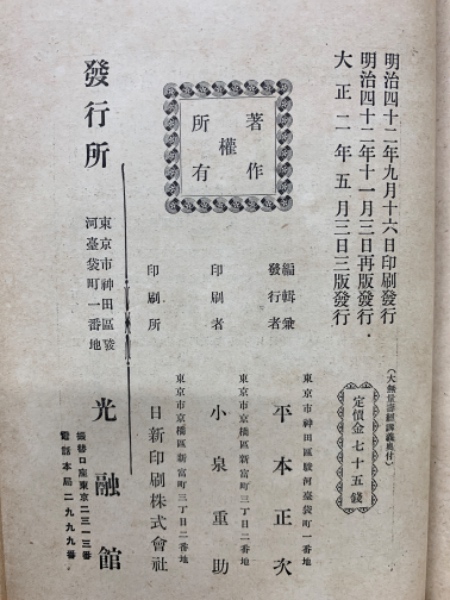 明治四十二年九月十六日印刷發行
明治四十二年十一月三日再版發行
大正二年五月三日三版發行
(大無量壽經講義奥付)
定價金七十五錢
著作
權
所有
編輯兼
發行者
東京市神田區駿河臺袋町一番地
平本正次
印刷者
東京市京橋區新富町三丁目二番地
小泉重助
印刷所
東京市京橋區新富町三丁目二番地
日新印刷株式會社
發行所
東京市神田區駿
河臺袋町一番地
光融館
振替口座東京二三一三番
電話本局二九九九番